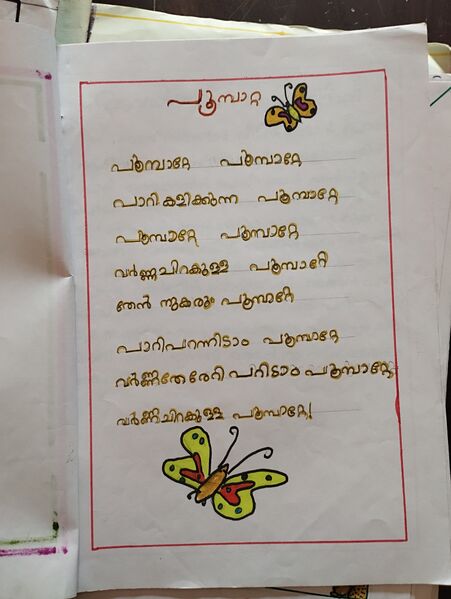 പൂമ്പാറ്റ
പൂമ്പാറ്റേ പൂമ്പാറ്റേ
പാറികളിക്കുന്ന പൂമ്പാറ്റേ
പൂമ്പാറ്റേ പൂമ്പാറ്റേ
വർണ്ണചിറകുള്ള പൂമ്പാറ്റേ
തേൻ നുകരും പൂമ്പാറ്റേ
പാറിപറന്നിടാം പൂമ്പാറ്റേ
വർണ്ണതേരേറി പറിടാം പൂമ്പാറ്റേ
വർണ്ണചിറകുള്ള പൂമ്പാറ്റേ!